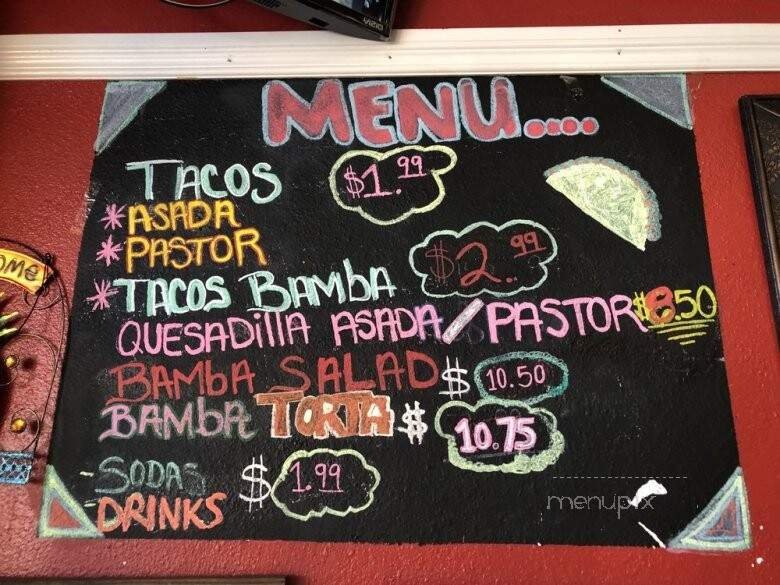 VIZIO
MENU....
TACOS $1.99
*ASADA
*PASTOR
*TACOS BAMBA $2.99
QUESADILLA ASADA/PASTOR $8.50
BAMBA SALAD $10.50
BAMBA TORTA $10.75
-SODAS $1.99
-DRINKS
menupix
OME